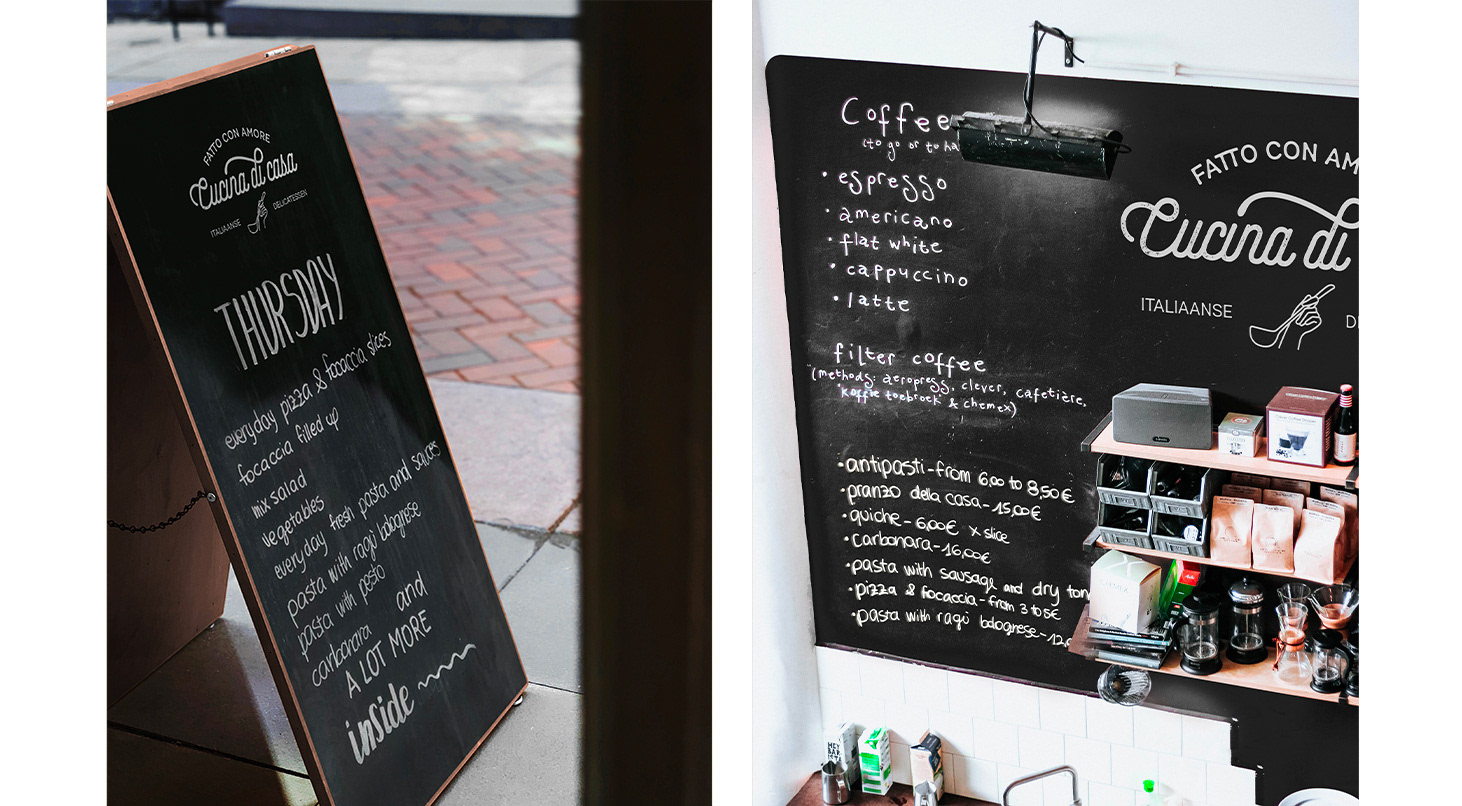 FATTO CON AMORE
Cucina di casa
ITALIAANSE DELICATESSEN
THURSDAY
everyday pizza & focaccia slices
focaccia filled up
mix salad
vegetables
everyday fresh pasta and salces
pasta with ragù bolognese
pasta with pesto
carbonara and
A LOT MORE
inside
Coffee
(to go or to ha
• espresso
• americano
• flat white
• cappuccino
• latte
filter coffee
(methods: aeropress, clever, cafetière,
koffie toebroek & chemex)
• antipasti - from 6,00 to 8,50 €
• pranzo della casa - 15,00€
• quiche - 6,00€ x slice
• carbonara - 16,00€
• pasta with sausage and dry tom
• pizza & focaccia - from 3 to 5€
• pasta with ragù bolognese - 12€
FATTO CON AM
Cucina di
ITALIAANSE D